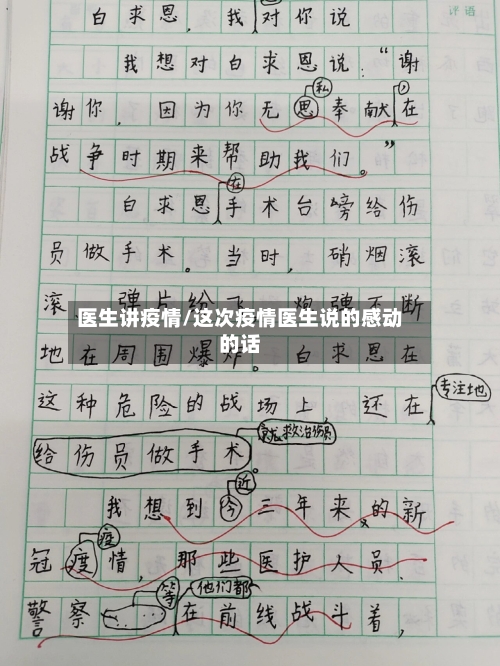 评语
白求恩，我对你说
我想对白求恩说：“谢
谢你，因为你无恩奉献在
私
，
战争时期来帮助我们。”
在
白求恩手术台嫎给伤
员做手术。当时，硝烟滚
滚，弹片纷飞，炮弹不断
医生讲疫情/这次疫情医生说的感动
的话
地在周围爆炸。白求恩在
这种危险的战场上，还在
专注地
给伤员做手术。
就救治伤员
近
我想到今三年来，的新
疫
冠疫情，那些医护人员、
等
他们都
警察……在前线战斗着，